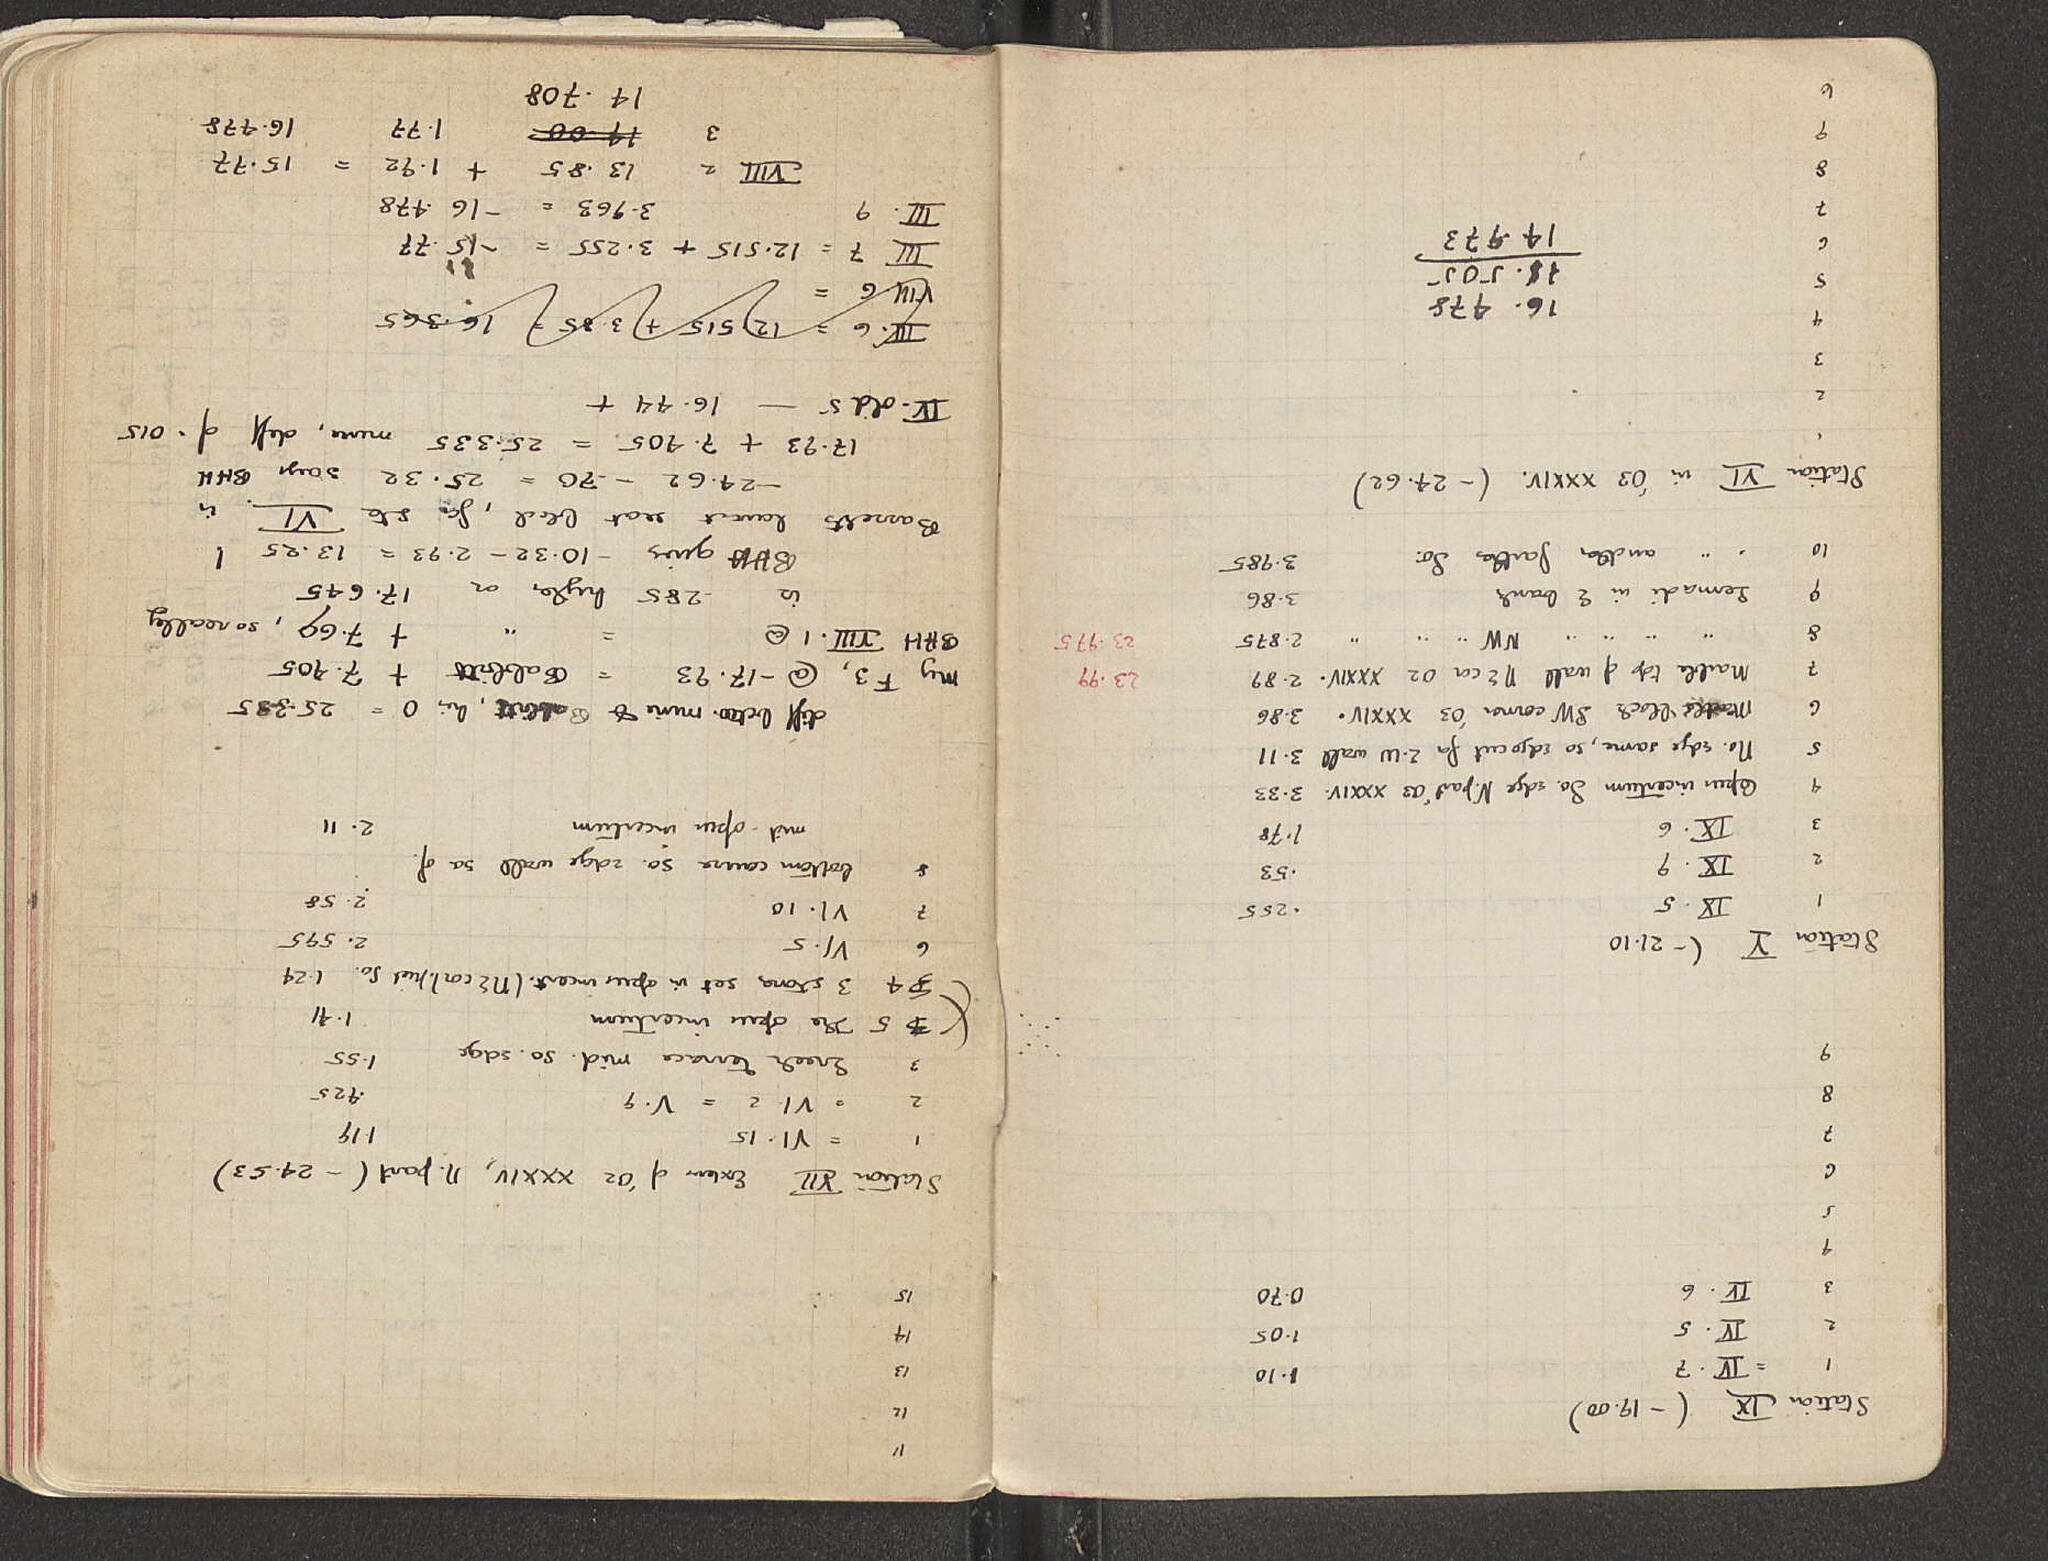 Station IX (- 19.00)
1 = IV. 7 1.10
2 IV. 5 1.05
3 IV. 6 0.70
4
5
6
7
8
9
Station V (- 21.10
1 IX. 5 .255
2 IX. 9 .53
3 IX. 6 1.78
4 Opus incertum So. edge N. part '03 XXXIV. 3.33
5 No. edge same, so edge cut for E-W wall 3.11
6 block SW corner '03 XXXIV. 3.86
7 Marble top of wall NE cor 02 XXXIV. 2.89 23.99
8 " " " " NW " " " 2.875 23.975
9 in E bank 3.86
10 " " another farther So. 3.985
Station VI in '03 XXXIV. (- 24.62)
1
2
3
4 16.478
5 18.505
6 14.973
7
8
9
6
11
12
13
14
15
Station VII Exten of '02 XXXIV, N. part (- 24.53)
1 = VI. 15 1.19
2 = VI. 2 = V. 9 .425
3 Greek terrace mid. so. edge 1.55
5 The opus incertum 1.41
4 3 stones set in opus incert. (NE cor) just So. 1.24
6 VI. 5 2.595
7 VI. 10 2.58
8 bottom course so. edge wall so of
mid. opus incertum 2.11
diff betw. mine & Babbitt, his 0 = 25.335
My F3, @ -17.93 = Babbitt + 7.405
BHH VIII. 1 @ = " + 7.69, so really
is .285 higher or 17.645
BHH gives - 10.32 - 2.93 = 13.25 !
Barretts lowest seat block, for sta VI. is
-24.62 - .70 = 25.32 says BHH
17.93 + 7.405 = 25.335 mine, diff of .015
IV. old 5 — 16.44 +
III. 6 = 12.515 + 3.85 = 16.365
VIII 6 =
III 7 = 12.515 + 3.255 = -15.77
III. 9 3.963 = -16.478
VIII 2 13.85 + 1.92 = 15.77
3 14.00 1.77 16.478
14.708